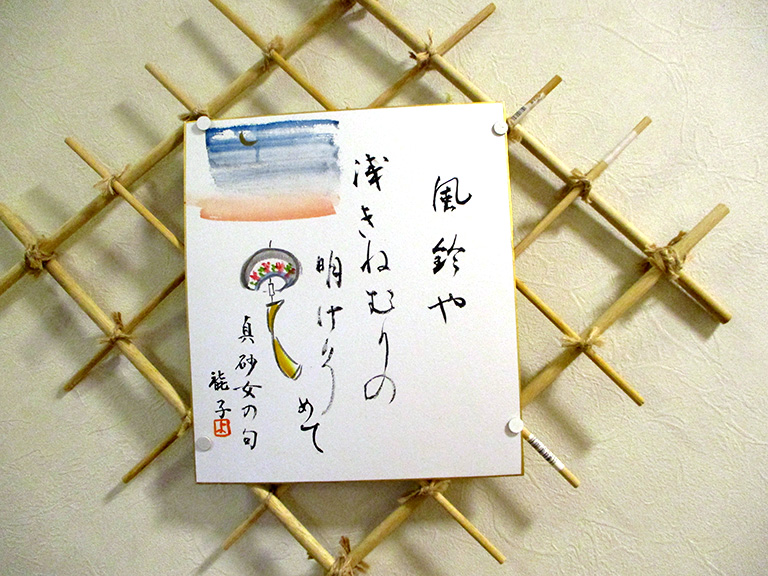 風鈴や
浅きねむりの
明けそ
めて
真砂女の句
能子
よ